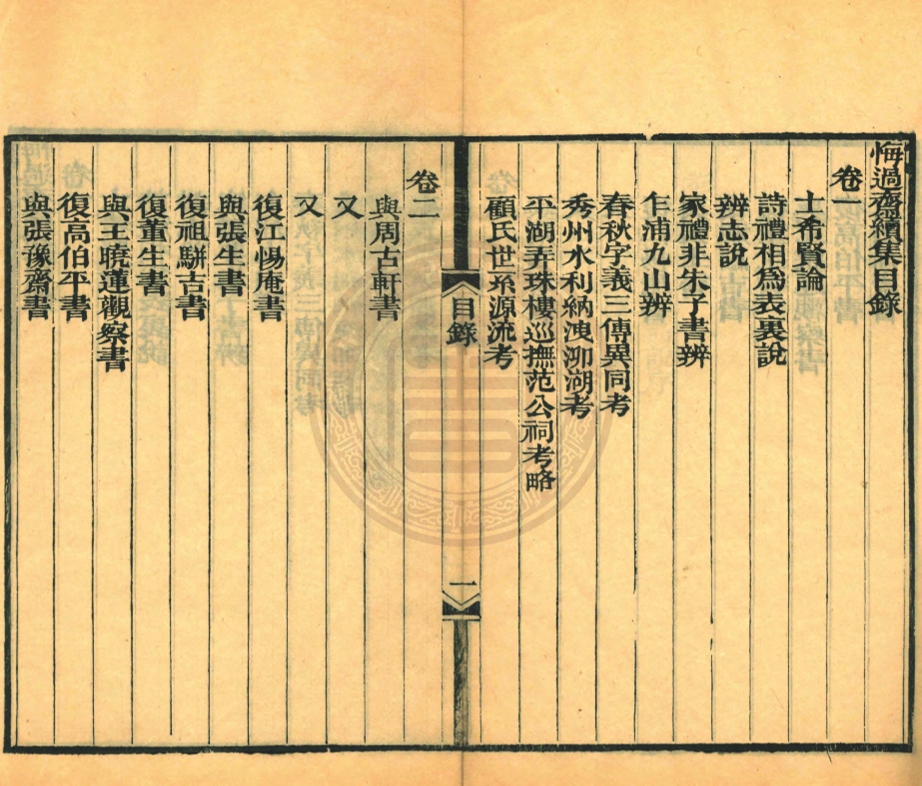 悔過齋續集目錄
卷一
士希賢論
詩禮相爲表裏說
辨志說
家禮非朱子書辨
乍浦九山辨
春秋字義三傳異同考
秀州水利納洩泖湖考
平湖弄珠樓巡撫范公祠考略
顧氏世系源流考
目錄
一
卷二
與周古軒書
又
又
復江惕庵書
與張生書
復祖駢古書
復董生書
與王曉蓮觀察書
復高伯平書
與張豫齋書